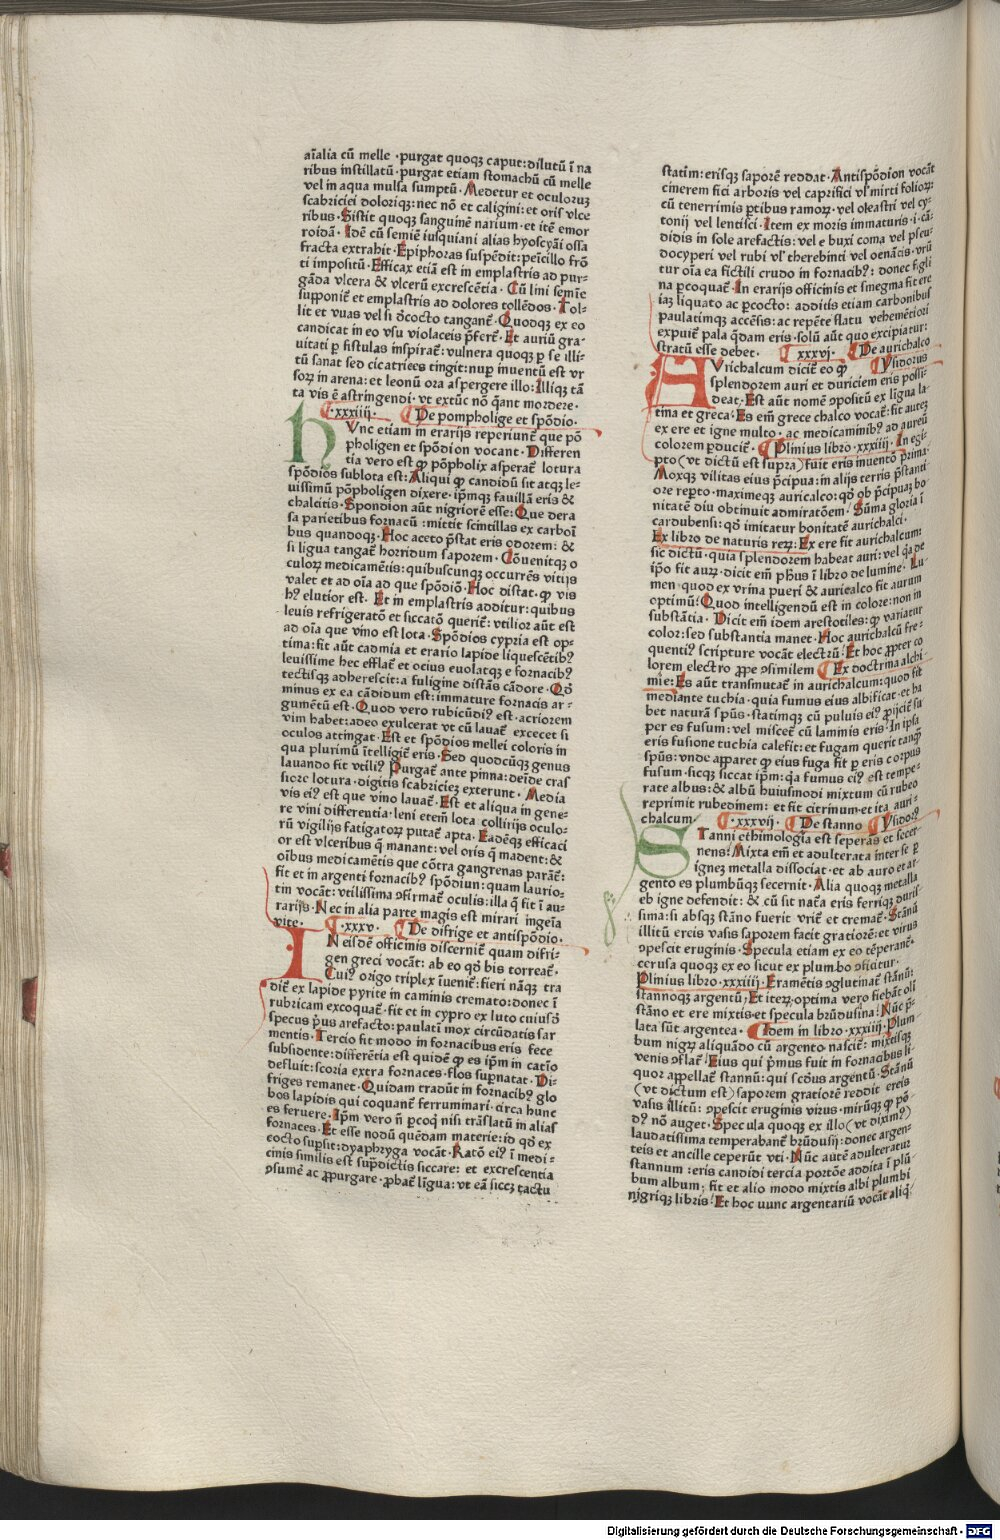 aĩalia cũ melle · purgat quoqꝫ caput: dilutũ ĩ na
ribus instillatũ · purgat etiam stomachũ cũ melle
vel in aqua mulsa sumptũ · Medetur et oculoruꝫ
scabriciei doloriqꝫ: nec nõ et caligini: et oris vlce
ribus · Sistit quoqꝫ sanguinẽ narium · et itẽ emor
roidã · Idẽ cũ semiẽ iusquiani alias hyoscyãi ossa
fracta extrahit · Epiphoras suspẽdit: peĩcillo frõ
ti impositũ · Efficax etiã est in emplastris ad pur-
gãda vlcera & vlcerũ excrescẽtia · Cũ lini semĩe
supponit̃ et emplastris ad dolores tollẽdos · Tol-
lit et vuas vel si dẽcocto tangant̃ · Quodqꝫ ex eo
candicat in eo vsu violaceis p̃fert̃ · Et auriũ gra-
uitati ꝑ fistulas inspirat̃: vulnera quoqꝫ ꝑ se illi-
tũ sanat sed cicatrices tingit: nuꝑ inuentũ est vr
soꝝ in arena: et leonũ ora aspergere illo: Illiqꝫ tã
ta vis ẽ astringendi · vt extũc nõ q̃ant mordere ·
· xxxiiij · De pompholige et spõdio ·
hVnc etiam in erarijs reperiunt̃ que põ
pholigen et spõdion vocant · Differen
tia vero est ꝙ põpholix asperat̃ lotura
spõdios sublota est: Aliqui ꝙ candidũ sit atqꝫ le-
uissimũ põpholigen dixere · ip̃mqꝫ fauillã eris &
chalcitis · Spondion aũt nigriorẽ esse: Que dera
sa parietibus fornacũ: mittit scintillas ex carboĩ
bus quandoqꝫ · Hoc aceto p̃stat eris odorem: &
si ligua tangat̃ horridum saporem · Cõuenitqꝫ o
culoꝝ medicamẽtis: quibuscunqꝫ occurrẽs vitijs
valet et ad oĩa ad que spõdiõ · Hoc distat · ꝙ vis
hꝰ elutior est · Et in emplastris additur: quibus
leuis refrigeratõ et siccatõ querit̃: vtilior aũt est
ad oĩa que vino est lota · Spõdios cypria est op-
tima: fit aũt cadmia et erario lapide liquescẽtibꝰ
leuissime hec efflat̃ et ocius euolatqꝫ e fornacibꝰ
tectisqꝫ adherescit: a fuligine distãs cãdore · Qđ
minus ex ea cãdidum est: immature fornacis ar-
gumẽtũ est · Quod vero rubicũdiꝰ est · acriorem
vim habet: adeo exulcerat vt cũ lauat̃ excecet si
oculos attingat · Est et spõdios mellei coloris in
qua plurimũ ĩtelligit̃ eris · Sed quodcũqꝫ genus
lauando fit vtiliꝰ Purgat̃ ante pinna: deĩde cras
siore lotura · digitis scabricieꝫ exterunt · Media
vis eiꝰ est que vino lauat̃ · Est et aliqua in gene-
re vini differentia · leni etem̃ lota collirijs oculo-
rũ vigilijs fatigatoꝝ putat̃ apta · Eadẽqꝫ efficaci
or est vlceribus q̃ manant: vel oris q̃ madent: &
oĩbus medicamẽtis que cõtra gangrenas parãt̃:
fit et in argenti fornacibꝰ spõdiun: quam laurio-
tin vocãt: vtilissima ↄfirmat̃ oculis: illa q̃ fit ĩ au-
rarijs · Nec in alia parte magis est mirari ingeĩa
vite ·
· xxxv · De difrige et antispõdio ·
IN eisdẽ officinis discernit̃ quam difri-
gen greci vocãt: ab eo qđ bis torreat̃ ·
Cuiꝰ origo triplex ĩuenit̃: fieri nãqꝫ tra
dit̃ ex lapide pyrite in caminis cremato: donec ĩ
rubricam excoquat̃ · fit et in cypro ex luto cuiusđ
specus p̃us arefacto: paulati mox circũdatis sar
mentis · Tercio fit modo in fornacibus eris fece
subsidente: differẽtia est quidẽ ꝙ es ip̃m in catĩo
defluit: scoria extra fornaces · flos suꝑnatat · Di-
friges remanet · Quidam tradũt in fornacibꝰ glo
bos lapidis qui coquant̃ ferruminari · circa hunc
es feruere · Ip̃m vero ñ ꝑcoq̃ nisi trãslatũ in alias
fornaces · Et esse nodũ quẽdam materie: id qđ ex
cocto suꝑsit: dyaphryga vocãt · Ratõ eiꝰ ĩ medi-
cinis similis est sup̃dictis siccare: et excrescentia
ↄsumẽ ac ꝓpurgare · ꝓbat̃ lĩgua: vt eã sicceꝫ tactu
statim: erisqꝫ saporẽ reddat · Antispõdion vocãt
cinerem fici arboris vel caprifici vl' mirti folioꝝ:
cũ tenerrimis ꝑtibus ramoꝝ · vel oleastri vel cy-
tonij vel lentisci · Item ex moris immaturis · i · cã-
didis in sole arefactis: vel e buxi coma vel pseu-
docyperi vel rubi vl' therebinti vel oenãtis · vrũ
tur oĩa ea fictili crudo in fornacibꝰ: donec figli
na ꝑcoquat̃ · In erarijs officinis et smegma fit ere
iaꝫ liquato ac ꝑcocto: additis etiam carbonibus
paulatimqꝫ accẽsis: ac repẽte flatu vehemẽtiori
expuit̃ pala q̃dam eris · solũ aũt quo excipiatur:
stratũ esse debet · · xxxvj · De aurichalco
AVrichalcum dicit̃ eo ꝙ Ysidorus
splendorem auri et duriciem eris possi-
deat, Est aũt nomẽ ↄpositũ ex ligua la-
tina et greca · Es em̃ grece chalco vocat̃: fit auteꝫ
ex ere et igne multo · ac medicaminibꝰ ad aureũ
colorem ꝑducit̃ · Plinius libro · xxxiiij · In egi-
pto (vt dictũ est supra) fuit eris inuentõ prima ·
Moxqꝫ vilitas eius p̃cipua: in alijs terris p̃stanti
ore reꝑto · maximeqꝫ auricalco: qđ ob p̃cipuaꝫ bo
nitatẽ diu obtinuit admiratõem · Sũma gloria ĩ
cardubensi: qđ imitatur bonitatẽ aurichalci ·
Ex libro de naturis reꝝ: Ex ere fit aurichalcum:
sic dictũ · quia splendorem habeat auri: vel q̃a de
ip̃o fit auꝝ · dicit em̃ ph̃us ĩ libro de lumine · Lu-
men quod ex vrina pueri & auricalco fit aurum
optimũ: Quod intelligendũ est in colore: non in
substãtia · Dicit em̃ idem arestotiles: ꝙ variatur
color: sed substantia manet · Hoc aurichalcũ fre-
quentiꝰ scripture vocãt electrũ: Et hoc ꝓpter co
lorem electro ꝓpe ↄsimilem Ex doctrina alchi-
mie: Es aũt transmutat̃ in aurichalcum: quod fit
mediante tuchia · quia fumus eius albificat · et ha
bet naturã sp̃us · statimqꝫ cũ puluis eiꝰ ꝓijcit̃ su
per es fusum: vel miscet̃ cũ laminis eris · In ipsa
eris fusione tuchia calefit: et fugam querit tanq̃
sp̃us: vnde apparet ꝙ eius fuga fit ꝑ eris corpus
fusum · sicqꝫ siccat ip̃m: q̃a fumus eiꝰ est tempe-
rate albus: & albũ huiusmodi mixtum cũ rubeo
reprimit rubedinem: et fit citrinum · et ita auri-
chalcum · · xxxvij · De stanno Ysidorꝰ
STanni ethimologia est seperãs et secer
nens: Mixta em̃ et adulterata inter se ꝑ
igneꝫ metalla dissociat · et ab auro et ar-
gento es plumbũqꝫ secernit · Alia quoqꝫ metalla
eb igne defendit: & cũ sit nat̃a eris ferriqꝫ duris-
sima: si absqꝫ stãno fuerit vrit̃ et cremat̃ · Stãnũ
illitũ ereis vasis saporem facit gratiorẽ: et virus
ↄpescit eruginis · Specula etiam ex eo tẽperant̃ ·
cerusa quoqꝫ ex eo sicut ex plumbo ↄficitur ·
Plinius libro · xxxiiij · Eramẽtis ↄglutinat̃ stãnũ:
stannoqꝫ argentũ, Et iteꝝ optima vero fiebãt oĩ
stãno et ere mixtis · et specula brũdusina: Nũc p̃-
lata sũt argentea · Idem in libro · xxxiiij · Plum-
bum nigꝝ aliquãdo cũ argento nascit̃: mixtisqꝫ
venis ↄflat̃ · Eius qui p̃mus fuit in fornacibus li-
quor appellat̃ stannũ: qui scđus argentũ · Stãnũ
(vt dictum est) saporem gratiorẽ reddit ereis
vasis illitũ: ↄpescit eruginis virus · mirũqꝫ ꝙ põ-
dꝰ nõ auget · Specula quoqꝫ ex illo (vt diximꝰ)
laudatissima temperabant̃ brũdusij: donec argen-
teis et ancille ceperũt vti · Nũc autẽ adulteratur
stannum: eris candidi tercia portõe addita ĩ plũ-
bum album; fit et alio modo mixtis albi plumbi
nigriqꝫ libris: Et hoc uunc argentariũ vocãt aliq̃
Digitalisierung gefördert durch die Deutsche Forschungsgemeinschaft · DFG